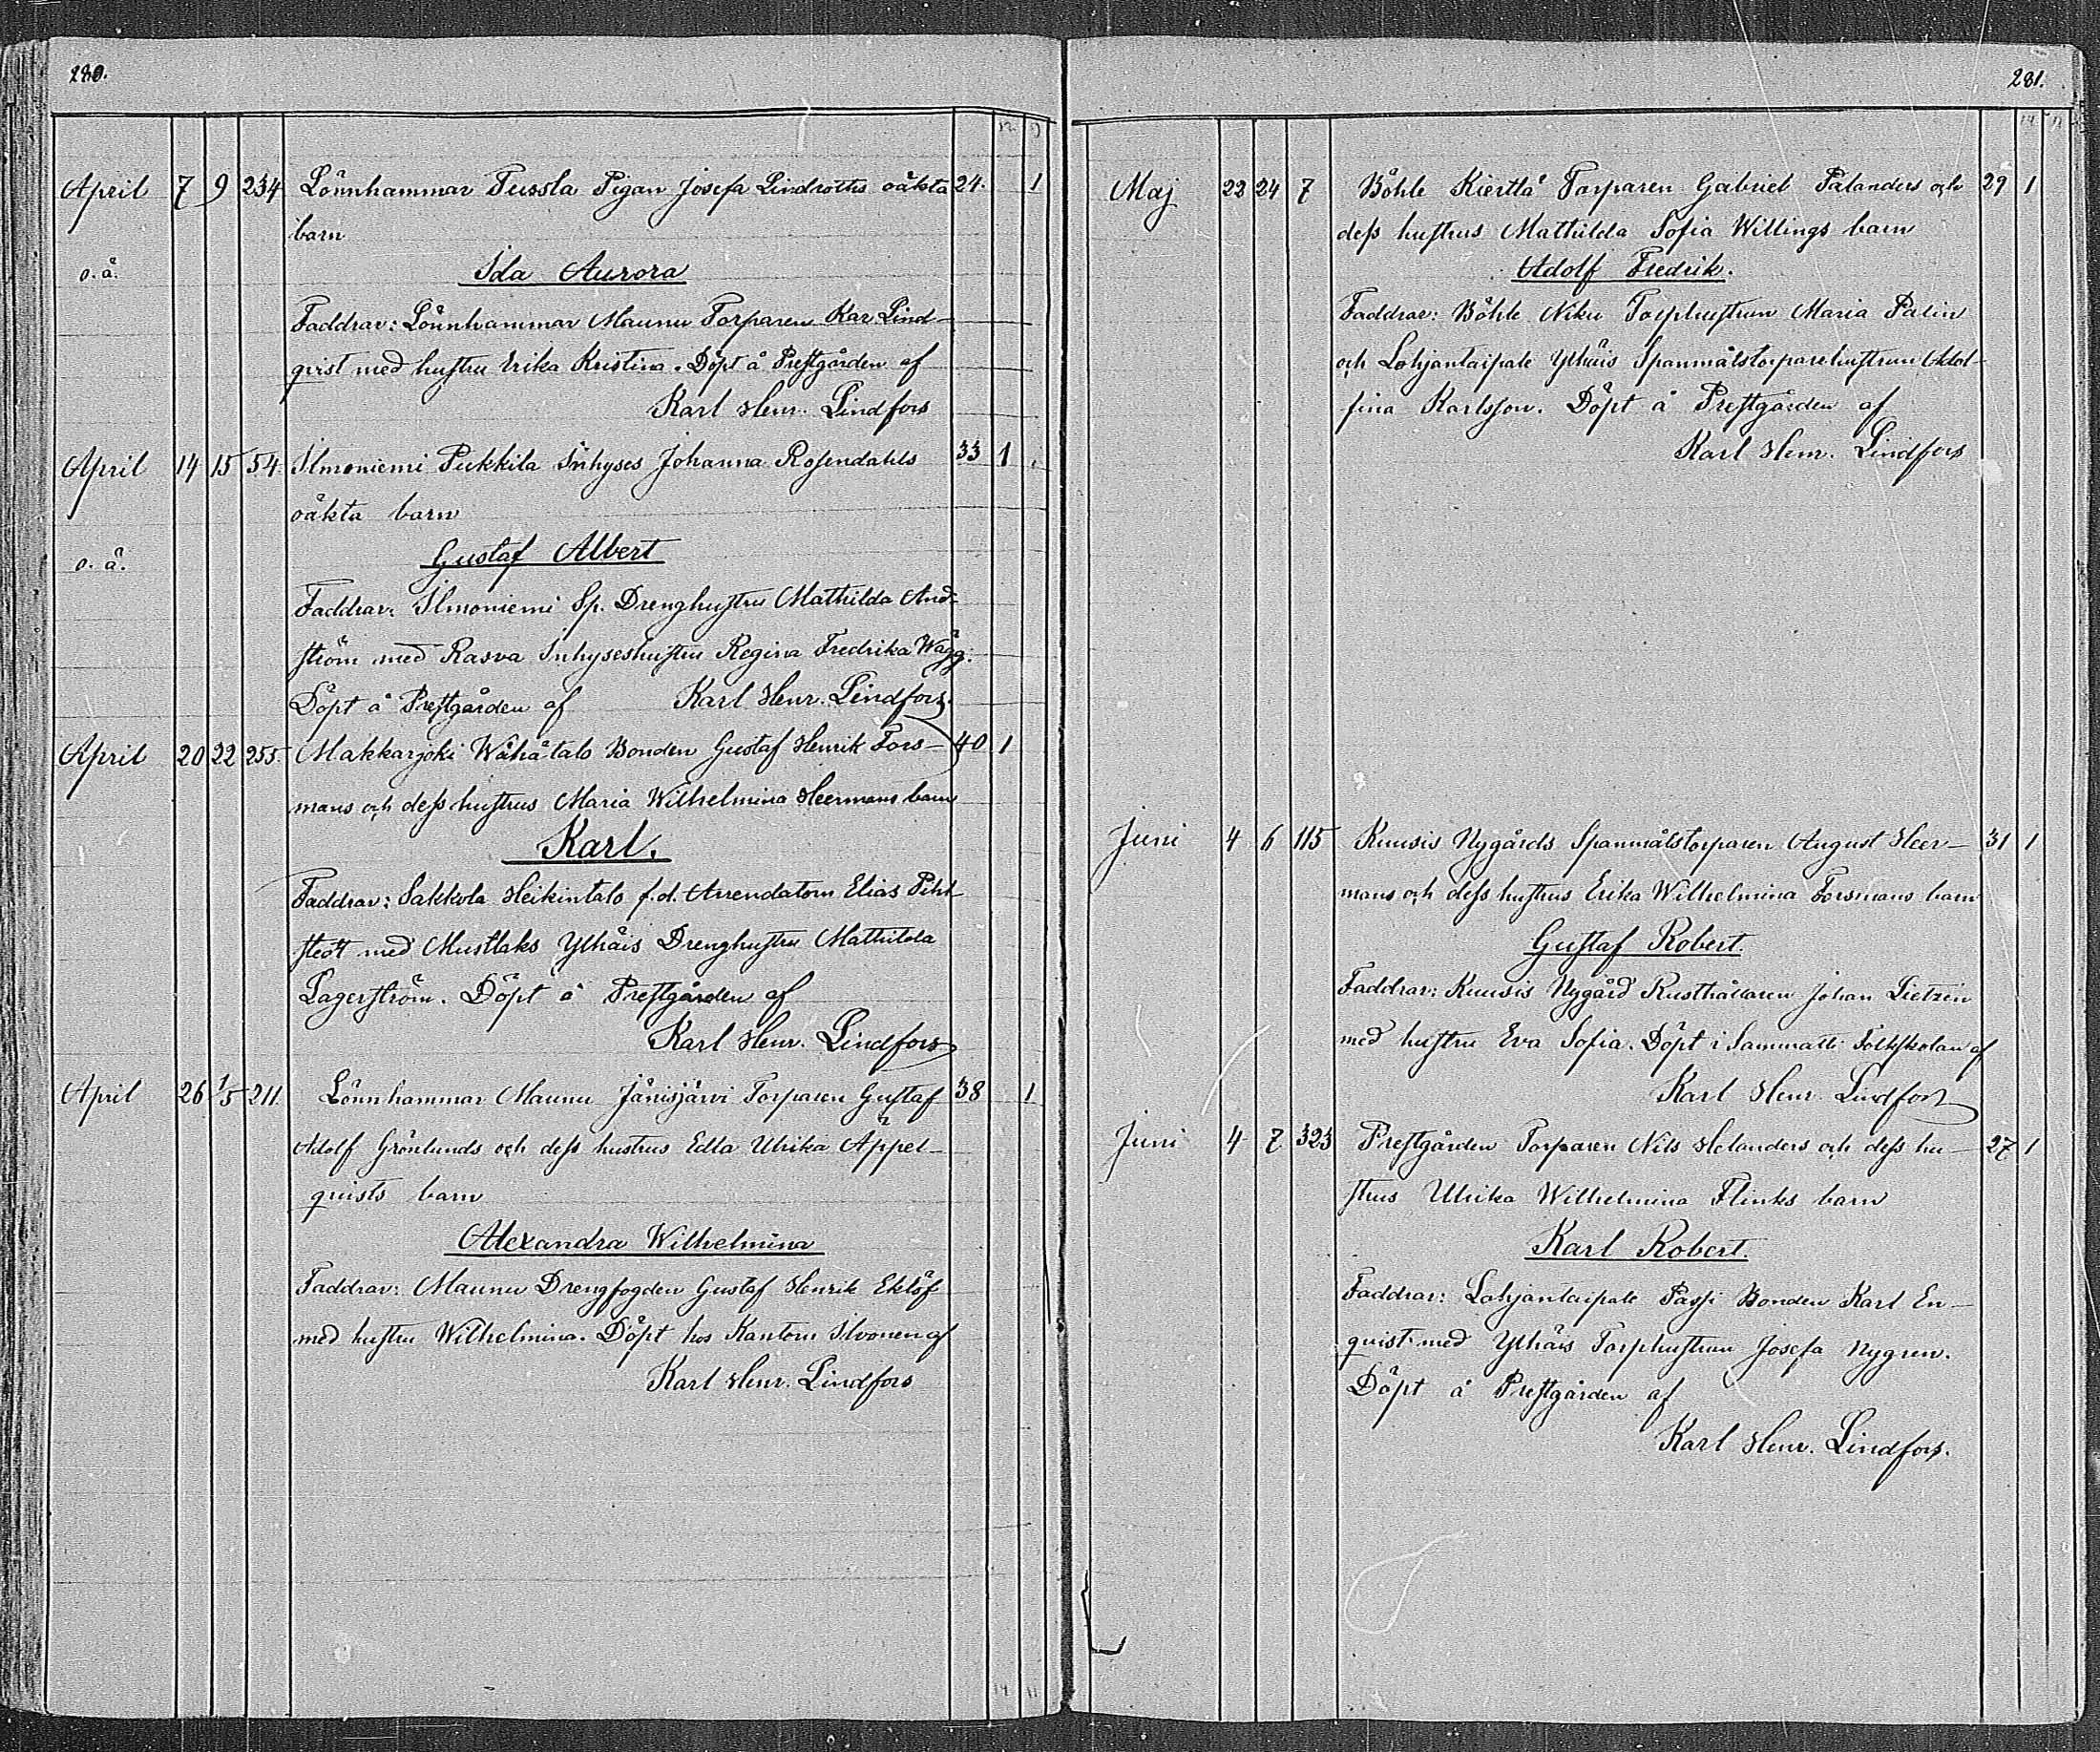 280.
12. 9
April 7 9 234 Lönnhammar Tussla Pigan Josefa Lindroths oäkta 24. 1
barn
o. ä. Ida Aurora
Faddrar: Lönnhammar Maunu Torparen Kar. Lind-
qvist med hustru Erika Kristina. Döpt å Prestgården af
Karl Henr. Lindfors
April 14 15 54 Ilmoniemi Pukkila Inhyses Johanna Rosendahls 33 1
oäkta barn
o. ä. Gustaf Albert
Faddrar: Ilmoniemi Sp. Drenghustru Mathilda And-
ström med Rasva Inhyseshustru Regina Fredrika Wägg.
Döpt å Prestgården af Karl Henr. Lindfors.
April 20 22 255. Makkarjoki Wähätalo Bonden Gustaf Henrik Fors- 40 1
mans och dess hustrus Maria Wilhelmina Heermans barn
Karl.
Faddrar: Sakkola Heikintalo f.d. Arrendatorn Elias Pihl-
stedt med Mustlaks Ylhäis Drenghustru Mathilda
Lagerström. Döpt å Prestgården af
Karl Henr. Lindfors
April 26 1/5 211. Lönnhammar Maunu Jänisjärvi Torparen Gustaf 38 1
Adolf Grönlunds och dess hustrus Edla Ulrika Äppel-
quists barn
Alexandra Wilhelmina
Faddrar: Maunu Drengfogden Gustaf Henrik Eklöf
med hustru Wilhelmina. Döpt hos Kantorn Ilvonen af
Karl Henr. Lindfors
14 11
281.
14 11
Maj 22 24 7 Böhle Kierttä Torparen Gabriel Palanders och 29 1
dess hustrus Mathilda Sofia Willings barn
Adolf Fredrik.
Faddrar: Böhle Niku Torphustrun Maria Palin
och Lohjantaipale Ylhäis Spanmålstorparehustrun Adol-
fina Karlsson. Döpt å Prestgården af
Karl Henr. Lindfors
Juni 4 6 115 Kuusis Nygårds Spanmålstorparen August Heer- 31 1
mans och dess hustrus Erika Wilhelmina Forsmans barn
Gustaf Robert.
Faddrar: Kuusis Nygård Rusthållaren Johan Lietzén
med hustru Eva Sofia. Döpt i Sammatti Folkskolan af
Karl Henr. Lindfors
Juni 4 7 323 Prestgården Torparen Nils Helanders och dess hu- 27 1
strus Ulrika Wilhelmina Flinks barn
Karl Robert.
Faddrar: Lohjantaipale Passi Bonden Karl En-
quist med Ylhäis Torphustrun Josefa Nygren.
Döpt å Prestgården af
Karl Henr. Lindfors.